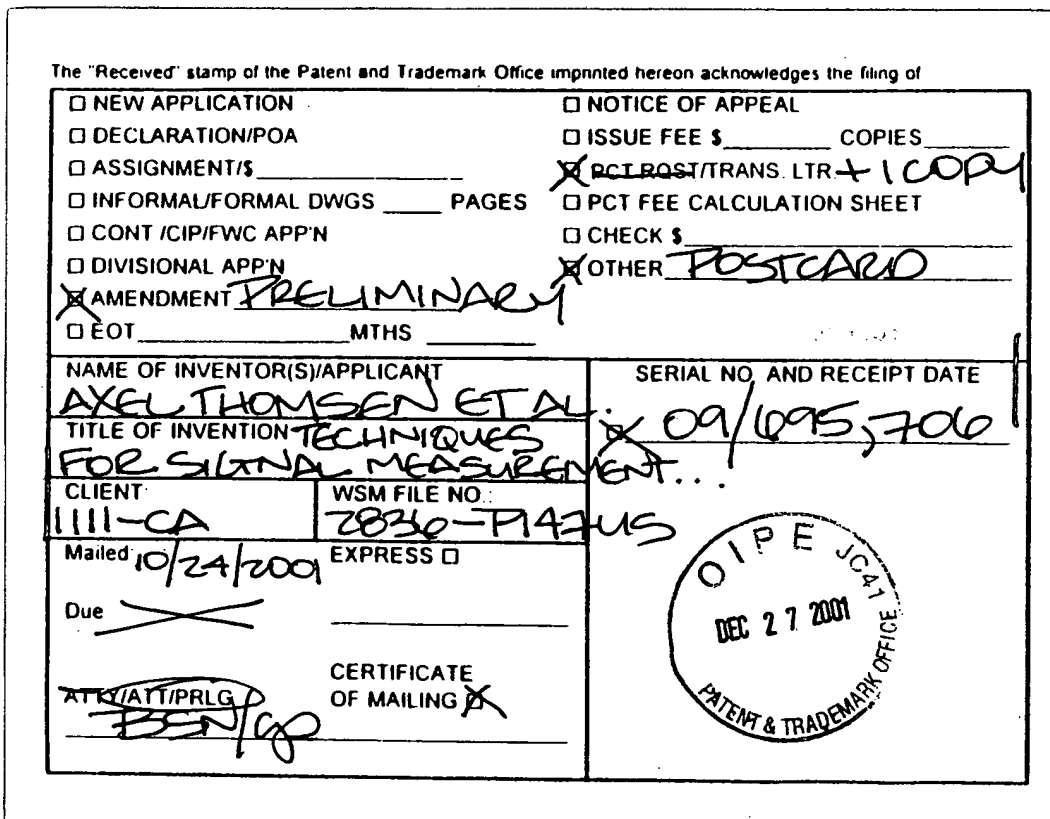 The "Received" stamp of the Patent and Trademark Office imprinted hereon acknowledges the filing of
☐ NEW APPLICATION
☐ DECLARATION/POA
☐ ASSIGNMENT/$
☐ INFORMAL/FORMAL DWGS ____ PAGES
☐ CONT /CIP/FWC APP'N
☐ DIVISIONAL APP'N
☒ AMENDMENT PRELIMINARY
☐ EOT ____ MTHS ____
☐ NOTICE OF APPEAL
☐ ISSUE FEE $____ COPIES ____
☒ PCT POST/TRANS. LTR + 1 COPY
☐ PCT FEE CALCULATION SHEET
☐ CHECK $
☒ OTHER POSTCARD
NAME OF INVENTOR(S)/APPLICANT
AXEL THOMSEN ET AL.
TITLE OF INVENTION TECHNIQUES
FOR SIGNAL MEASUREMENT...
CLIENT
1111-CA
WSM FILE NO.:
2836-P147US
Mailed 10/24/2001
EXPRESS ☐
Due
CERTIFICATE
OF MAILING ☒
ATTY/ATT/PRLG
BSN/
SERIAL NO. AND RECEIPT DATE
☒ 09/695,706
OIPE JC41
DEC 27 2001
PATENT & TRADEMARK OFFICE